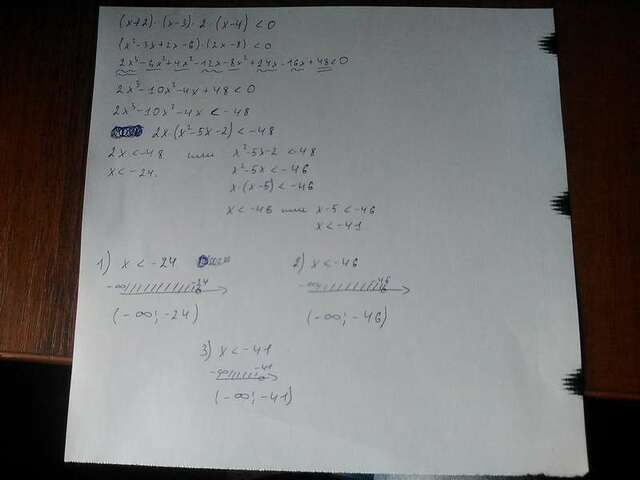 (x+2)·(x-3)·2·(x-4)<0
(x²-3x+2x-6)·(2x-8)<0
2x³-6x²+4x²-12x-8x²+24x-16x+48<0
2x³-10x²-4x+48<0
2x³-10x²-4x<-48
2x·(x²-5x-2)<-48
2x<-48 или x²-5x-2<-48
x<-24. x²-5x<-46
x·(x-5)<-46
x<-46 или x-5<-46
x<-41
1) x<-24 2) x<-46
-∞ -24 -∞ -46
(-∞; -24) (-∞; -46)
3) x<-41
-∞ -41
(-∞; -41)